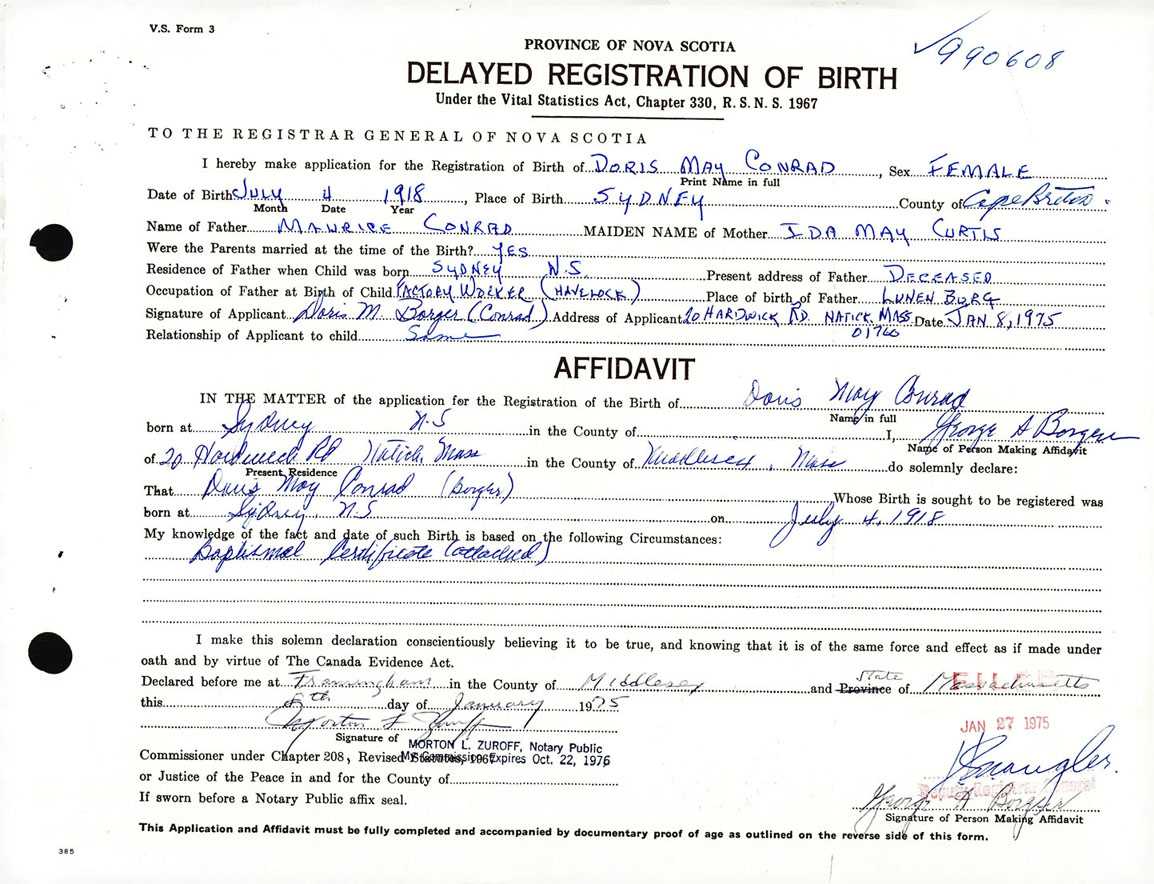 V.S. Form 3
✓990608
PROVINCE OF NOVA SCOTIA
DELAYED REGISTRATION OF BIRTH
Under the Vital Statistics Act, Chapter 330, R.S.N.S. 1967
TO THE REGISTRAR GENERAL OF NOVA SCOTIA
I hereby make application for the Registration of Birth of DORIS MAY CONRAD, Sex FEMALE
Print Name in full
Date of Birth JULY 4 1918, Place of Birth SYDNEY County of Cape Breton.
Month Date Year
Name of Father MAURICE CONRAD MAIDEN NAME of Mother IDA MAY CURTIS
Were the Parents married at the time of the Birth? YES
Residence of Father when Child was born SYDNEY N.S. Present address of Father DECEASED
Occupation of Father at Birth of Child FACTORY WORKER (HAVELOCK) Place of birth of Father LUNEN BURG
Signature of Applicant Doris M. Borger (Conrad) Address of Applicant 20 HARDWICK RD. NATICK, MASS Date JAN 8, 1975
01760
Relationship of Applicant to child Same
AFFIDAVIT
IN THE MATTER of the application for the Registration of the Birth of Doris May Conrad
Name in full
born at Sydney N.S in the County of I, George A Borger
Name of Person Making Affidavit
of 20 Hardwick Rd Natick, Mass in the County of Middlesex, Mass do solemnly declare:
Present Residence
That Doris May Conrad (Borger) Whose Birth is sought to be registered was
born at Sydney, N.S on July 4, 1918
My knowledge of the fact and date of such Birth is based on the following Circumstances:
Baptismal Certificate (attached)
I make this solemn declaration conscientiously believing it to be true, and knowing that it is of the same force and effect as if made under
oath and by virtue of The Canada Evidence Act.
Declared before me at Framingham in the County of Middlesex and Province State of Massachusetts
FILED
this 8th day of January 1975
JAN 27 1975
Morton L Zuroff
Signature of MORTON L. ZUROFF, Notary Public
Commissioner under Chapter 208, Revised Statutes, 1967 My Commission Expires Oct. 22, 1976
or Justice of the Peace in and for the County of
Deputy Registrar General
If sworn before a Notary Public affix seal.
George A Borger
Signature of Person Making Affidavit
This Application and Affidavit must be fully completed and accompanied by documentary proof of age as outlined on the reverse side of this form.
385